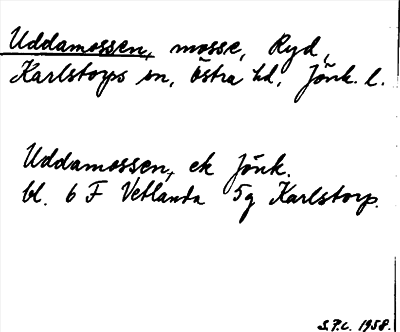 Uddamossen, mosse, Ryd,
Karlstorps sn, Östra hd, Jönk. l.
Uddamossen, ek Jönk.
bl. 6 F Vetlanda 5g Karlstorp.
S.F.L. 1958.